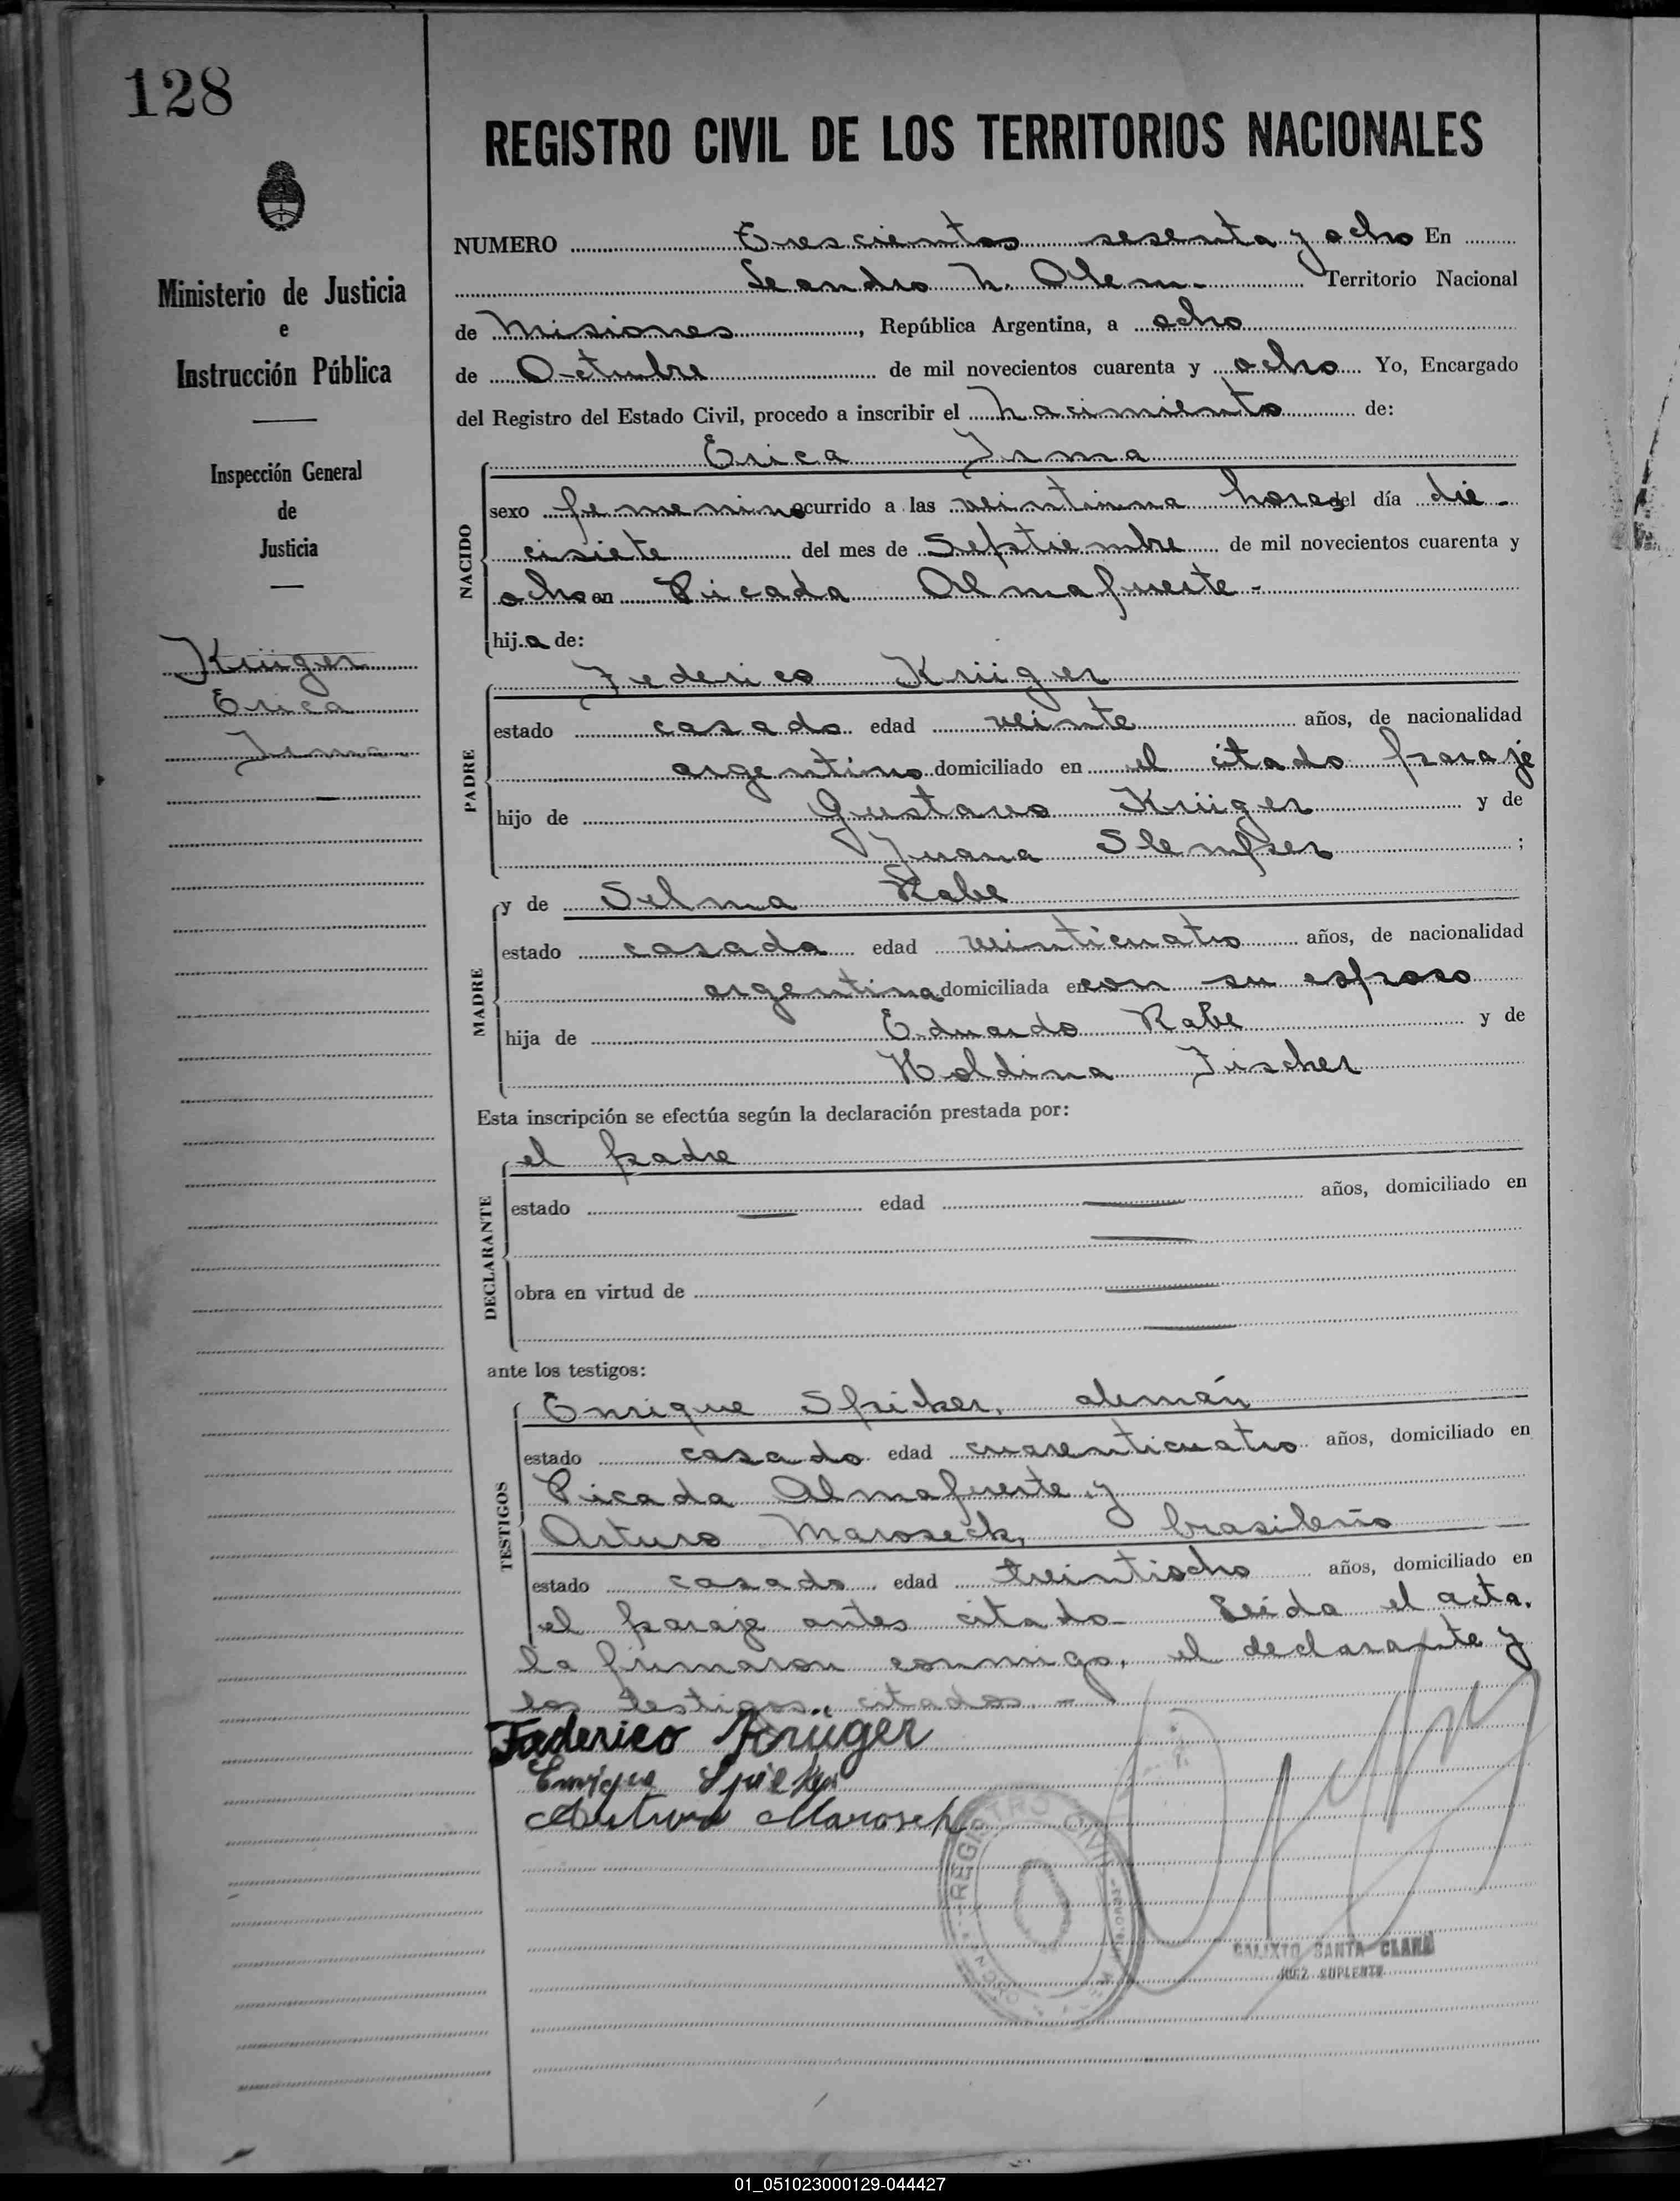 128
REGISTRO CIVIL DE LOS TERRITORIOS NACIONALES
Ministerio de Justicia
e
Instrucción Pública
Inspección General
de
Justicia
Krüger
Erica
Irma
NUMERO Trescientos sesenta y ocho En
Leandro N. Alem. Territorio Nacional
de Misiones, República Argentina, a ocho
de Octubre de mil novecientos cuarenta y ocho Yo, Encargado
del Registro del Estado Civil, procedo a inscribir el Nacimiento de:
NACIDO
Erica Irma
sexo femenino ocurrido a las veintiuna horas del día die-
cisiete del mes de Septiembre de mil novecientos cuarenta y
ocho en Picada Almafuerte-
hija de:
PADRE
Federico Krüger
estado casado edad veinte años, de nacionalidad
argentino domiciliado en el citado paraje
hijo de Gustavo Krüger y de
Juana Slemper ;
MADRE
y de Selma Rabe
estado casada edad veinticuatro años, de nacionalidad
argentina domiciliada en con su esposo
hija de Eduardo Rabe y de
Holdina Fischer
Esta inscripción se efectúa según la declaración prestada por:
DECLARANTE
el padre
estado — edad — años, domiciliado en
—
obra en virtud de —
—
ante los testigos:
TESTIGOS
Enrique Spicker, alemán
estado casado edad cuarenticuatro años, domiciliado en
Picada Almafuerte y
Arturo Maroseck, brasileño
estado casado edad treintiocho años, domiciliado en
el paraje antes citado- Leída el acta,
la firmaron conmigo, el declarante y
los testigos citados.-
Faderico Krüger
Enrique Spicker
Arturo Marosek
REGISTRO CIVIL
CALIXTO SANTA CLARA
JUEZ SUPLENTE
01_051023000129-044427